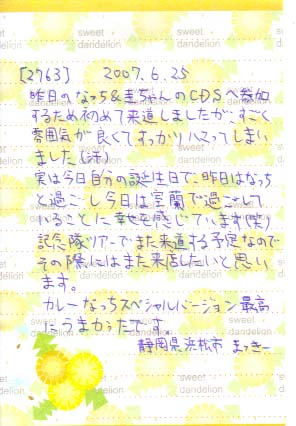 sweet dandelion sweet dandelion
[2763] 2007.6.25
昨日のなっち&圭ちゃんのCDSへ参加
するため初めて来道しましたが、すごく
雰囲気が良くてすっかりハマってしまい
ました(汗)
実は今日自分の誕生日で、昨日はなっち
と過ごし今日は室蘭で過ごして
いることに幸せを感じています(笑)
記念隊ツアーでまた来道する予定なので
その際にはまた来店したいと思い
ます。
カレーなっちスペシャルバージョン最高
にうまかったです。
静岡県浜松市 まっきー
sweet dandelion sweet dandelion